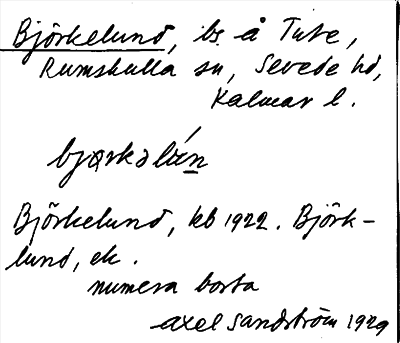 Björkelund, bs å Tute,
Rumskulla sn, Sevede hd,
Kalmar l.
bjørkəlún
Björkelund, kb 1922. Björk-
lund, ek.
numera borta
Axel Sandström 1929